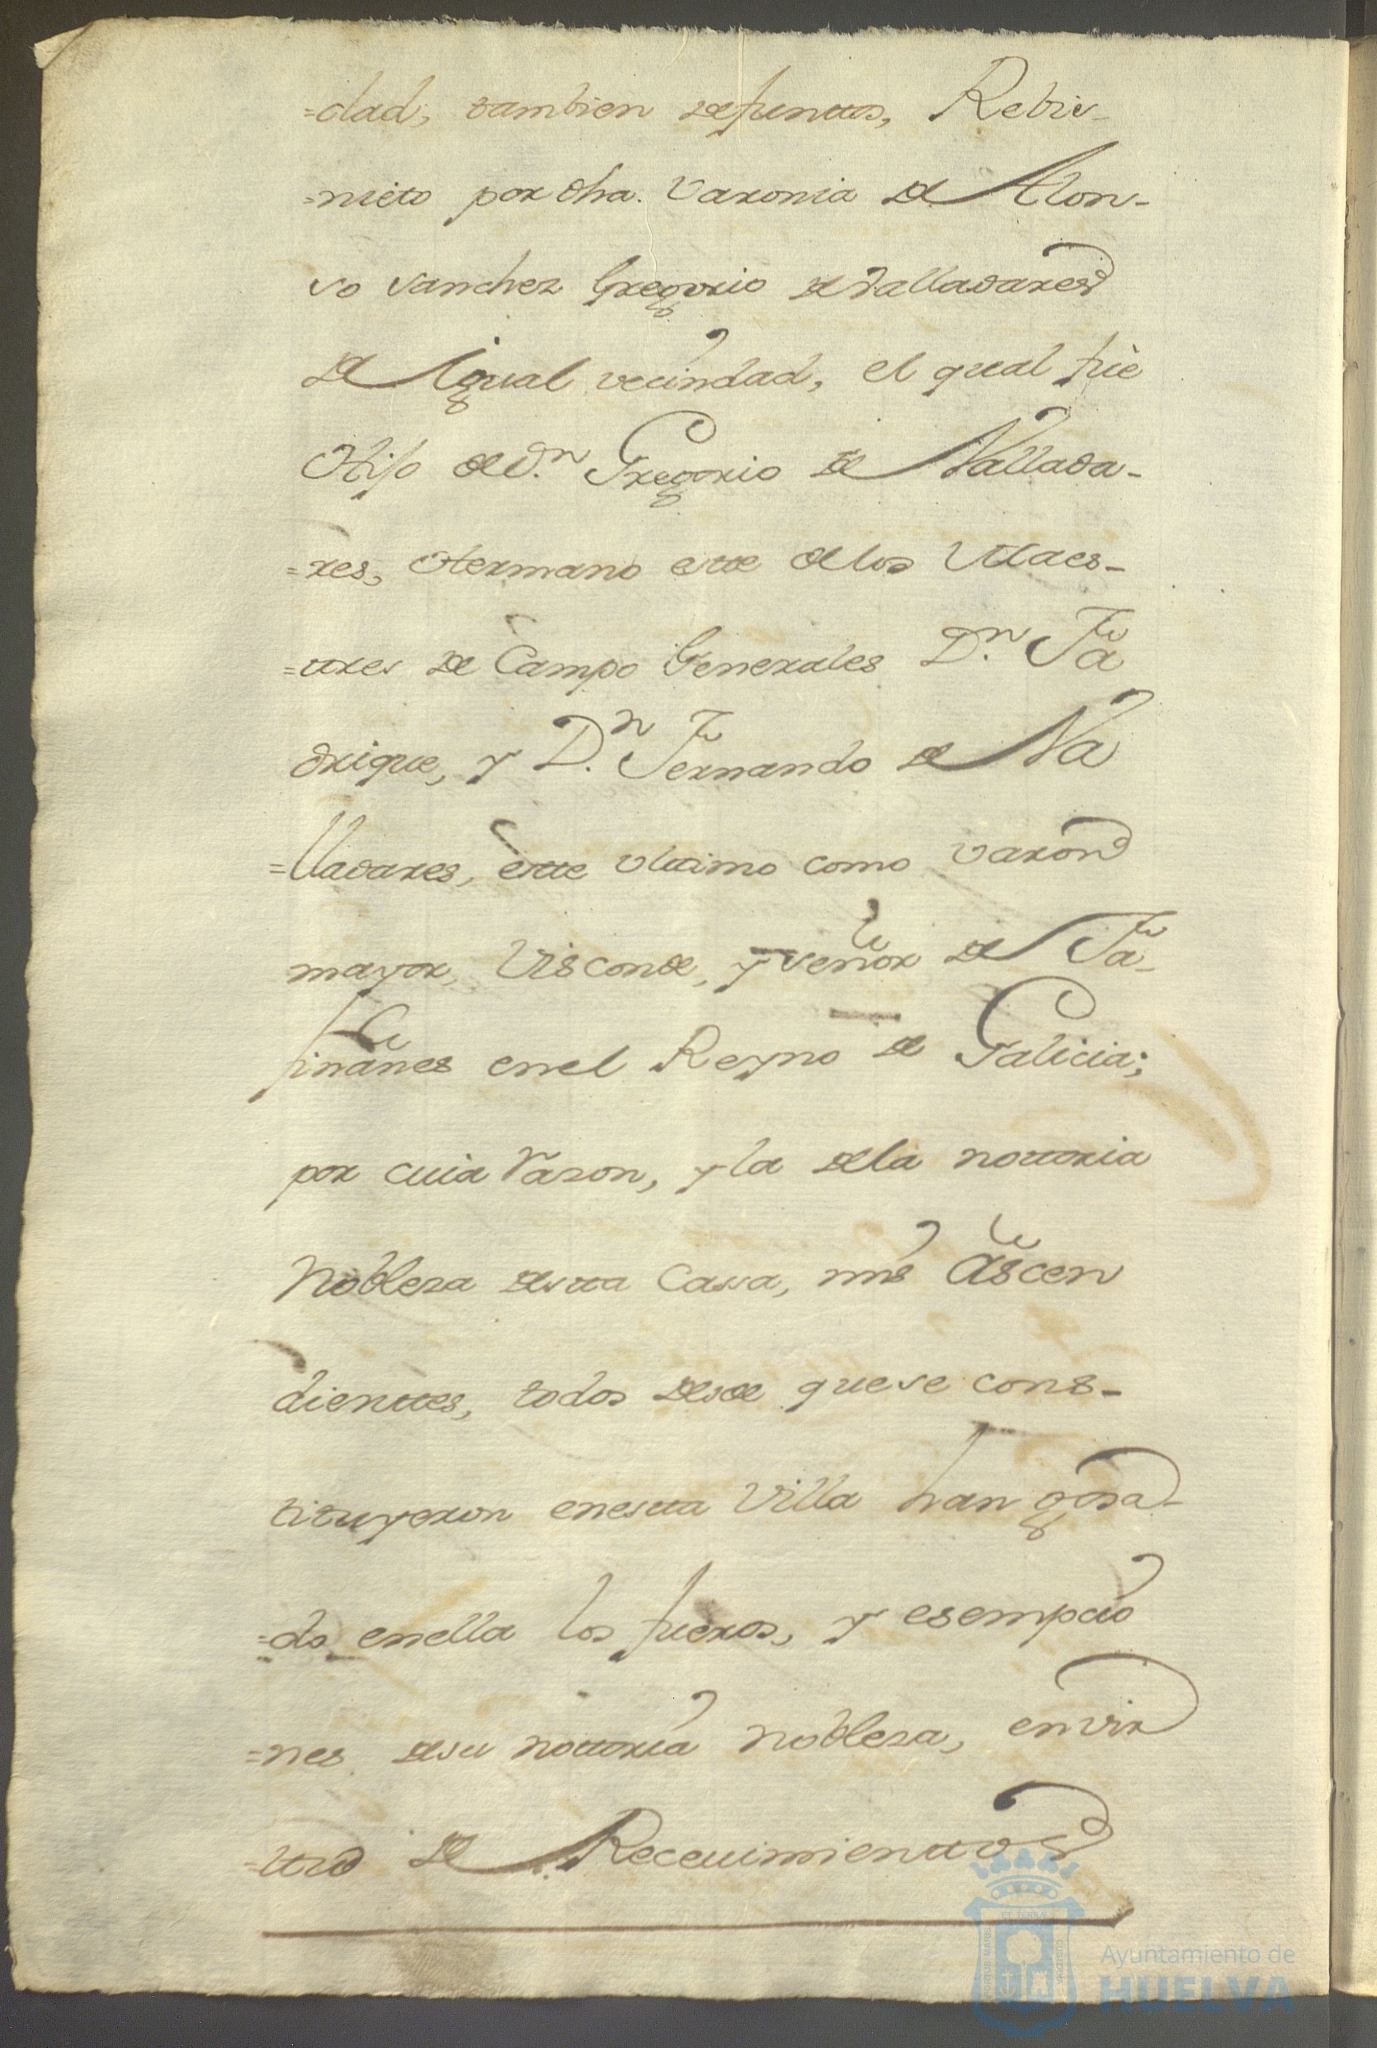 =dad, tambien defunttos, Rebiz-
=nieto por dha. Varonia de Alon-
so Sanchez Gregorio de Valladares
de Igual vecindad, el qual fue
Hijo de Dn. Gregorio de Vallada-
=res, Hermano estte de los Maes-
=ttres de Campo Generales Dn. Fa
drique, y Dn. Fernando de Va
=lladares, estte ulttimo como varon
mayor, Visconde, y señor de Fa-
fiñanes en el Reyno de Galicia;
por cuia razon, y la de la nottoria
Nobleza destta Casa, mis Ascen
dienttes, todos desde que se cons-
tituyeron en estta Villa han goza-
=do en ella los fueros, y esempcio
=nes de su nottoria nobleza, en vir
=ttud de Receuimienttos
Ayuntamiento de
HUELVA